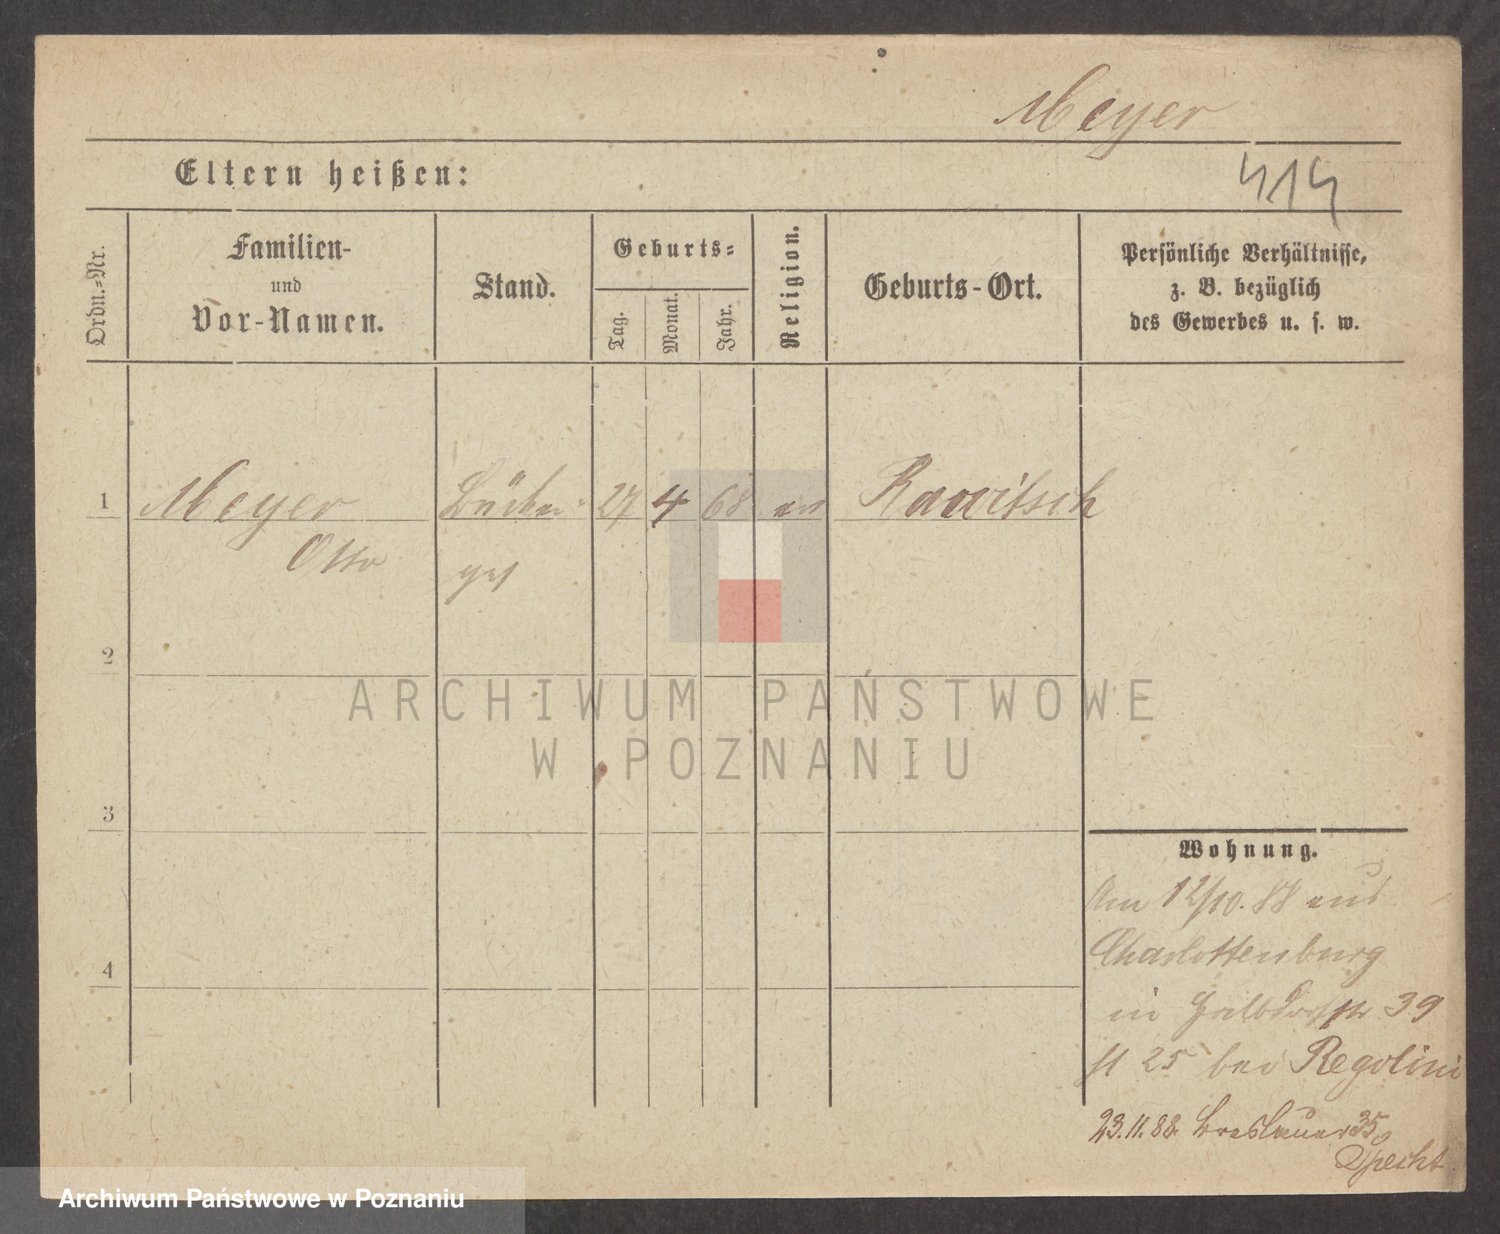 Meyer
Eltern heißen:
414
Ordn.-Nr.
Familien-
und
Vor-Namen.
Stand.
Geburts-
Tag.
Monat.
Jahr.
Religion.
Geburts-Ort.
Persönliche Verhältnisse,
z. B. bezüglich
des Gewerbes u. s. w.
1 Meyer 27 4 68 Rawitsch
Otto
2
3
4
ARCHIWUM PAŃSTWOWE
W POZNANIU
Wohnung.
Am 12/10. 88 aus
Charlottenburg
in 39
25 bei Regolini
23.11.88. Breslauer 35
Specht
Archiwum Państwowe w Poznaniu